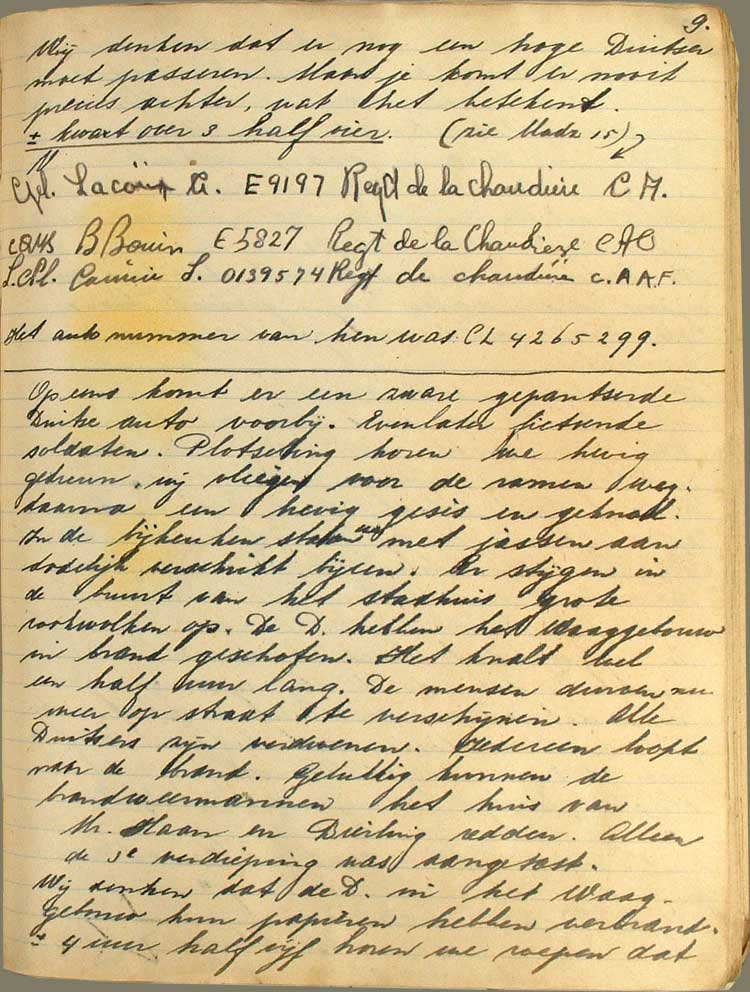 9.
Wij denken dat er nog een hoge Duitser
moet passeren. Maar je komt er nooit
precies achter, wat het betekent.
± kwart over 3 half vier. (zie bladz 15)
Cpl. G. E9197 Regt de la chaudière C M.
CQMS B Bouin E5827 Regt de la Chaudiere CAO
L.Cpl. L. 0139574 Regt de chaudière C.A.A.F.
Het auto nummer van hen was CL 4265299.
Op eens komt er een zware gepantserde
Duitse auto voorbij. Even later fietsende
soldaten. Plotseling horen we hevig
gedreun, wij vliegen voor de ramen weg.
daarna een hevig gesis en geknal.
In de bijkeuken staan we met jassen aan
dodelijk verschrikt bijeen. Er stijgen in
de buurt van het stadhuis grote
rookwolken op. De D. hebben het Waaggebouw
in brand geschoten. Het knalt wel
een half uur lang. De mensen durven nu
weer op straat te verschijnen. Alle
Duitsers zijn verdwenen. Iedereen loopt
naar de brand. Gelukkig kunnen de
brandweermannen het huis van
Mr. Haan en redden. Alleen
de 3e verdieping was aangetast.
Wij denken dat de D. in het Waag-
gebouw hun papieren hebben verbrand.
± 4 uur half vijf horen we roepen dat